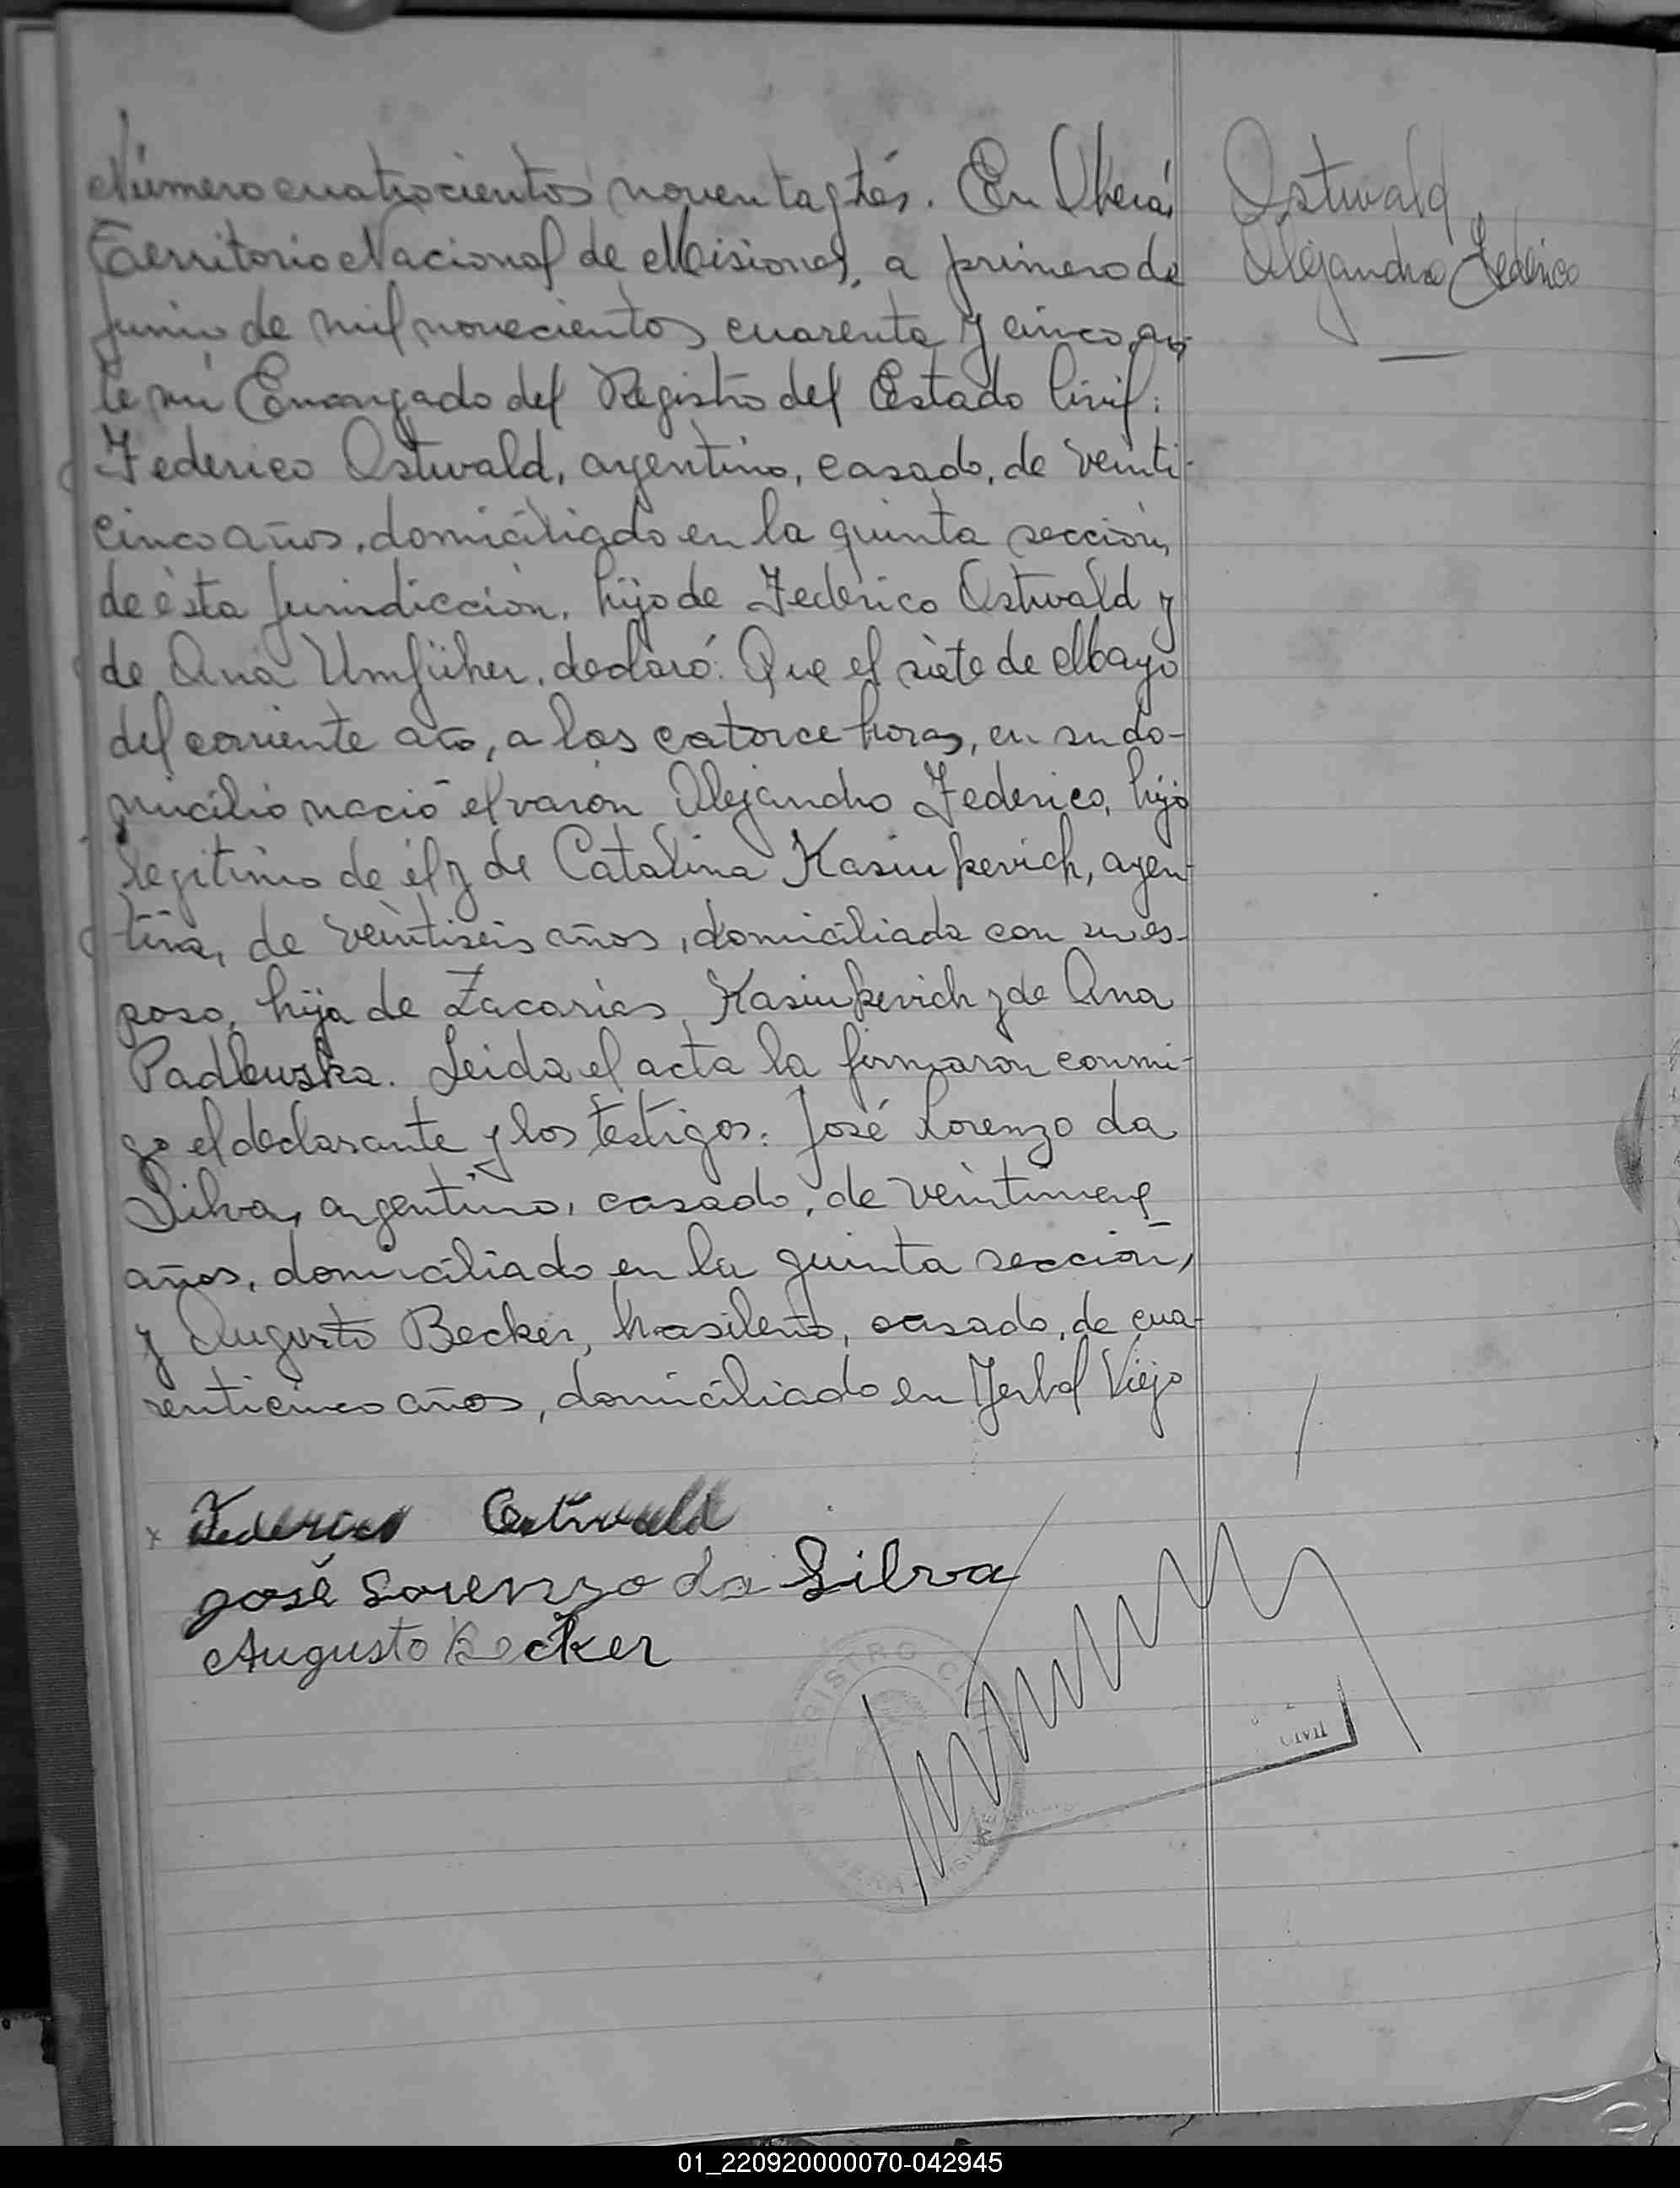 Número cuatrocientos noventa y trés. En Oberá,
Territorio Nacional de Misiones, a primero de
Junio de mil novecientos cuarenta y cinco, an-
te mí Encargado del Registro del Estado Civil:
Federico Ostwald, argentino, casado, de veinti-
cinco años, domiciliado en la quinta sección,
de ésta Jurisdicción, hijo de Federico Ostwald y
de Ana Umfüher, declaró: Que el siete de Mayo
del corriente año, a las catorce horas, en su do-
micilio nació el varón Alejandro Federico, hijo
legítimo de él y de Catalina Kasiukevich, argen-
tina, de veintiseis años, domiciliada con su es-
poso, hija de Zacarias Kasiukevich y de Ana
Padlewska. Leida el acta la firmaron conmi-
go el declarante y los testigos: José Lorenzo da
Silva, argentino, casado, de veintinueve
años, domiciliado en la quinta sección,
y Augusto Becker, brasileño, casado, de cua-
renticinco años, domiciliado en Yerbal Viejo
Ostwald
Alejandro Federico
x Federico Ostwald
José Lorenzo da Silva
Augusto Becker
REGISTRO CIVIL
CIVIL
01_220920000070-042945